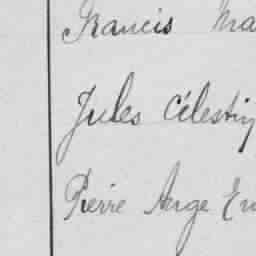 Francis Ma
Jules Célestin
Pierre Ange Em